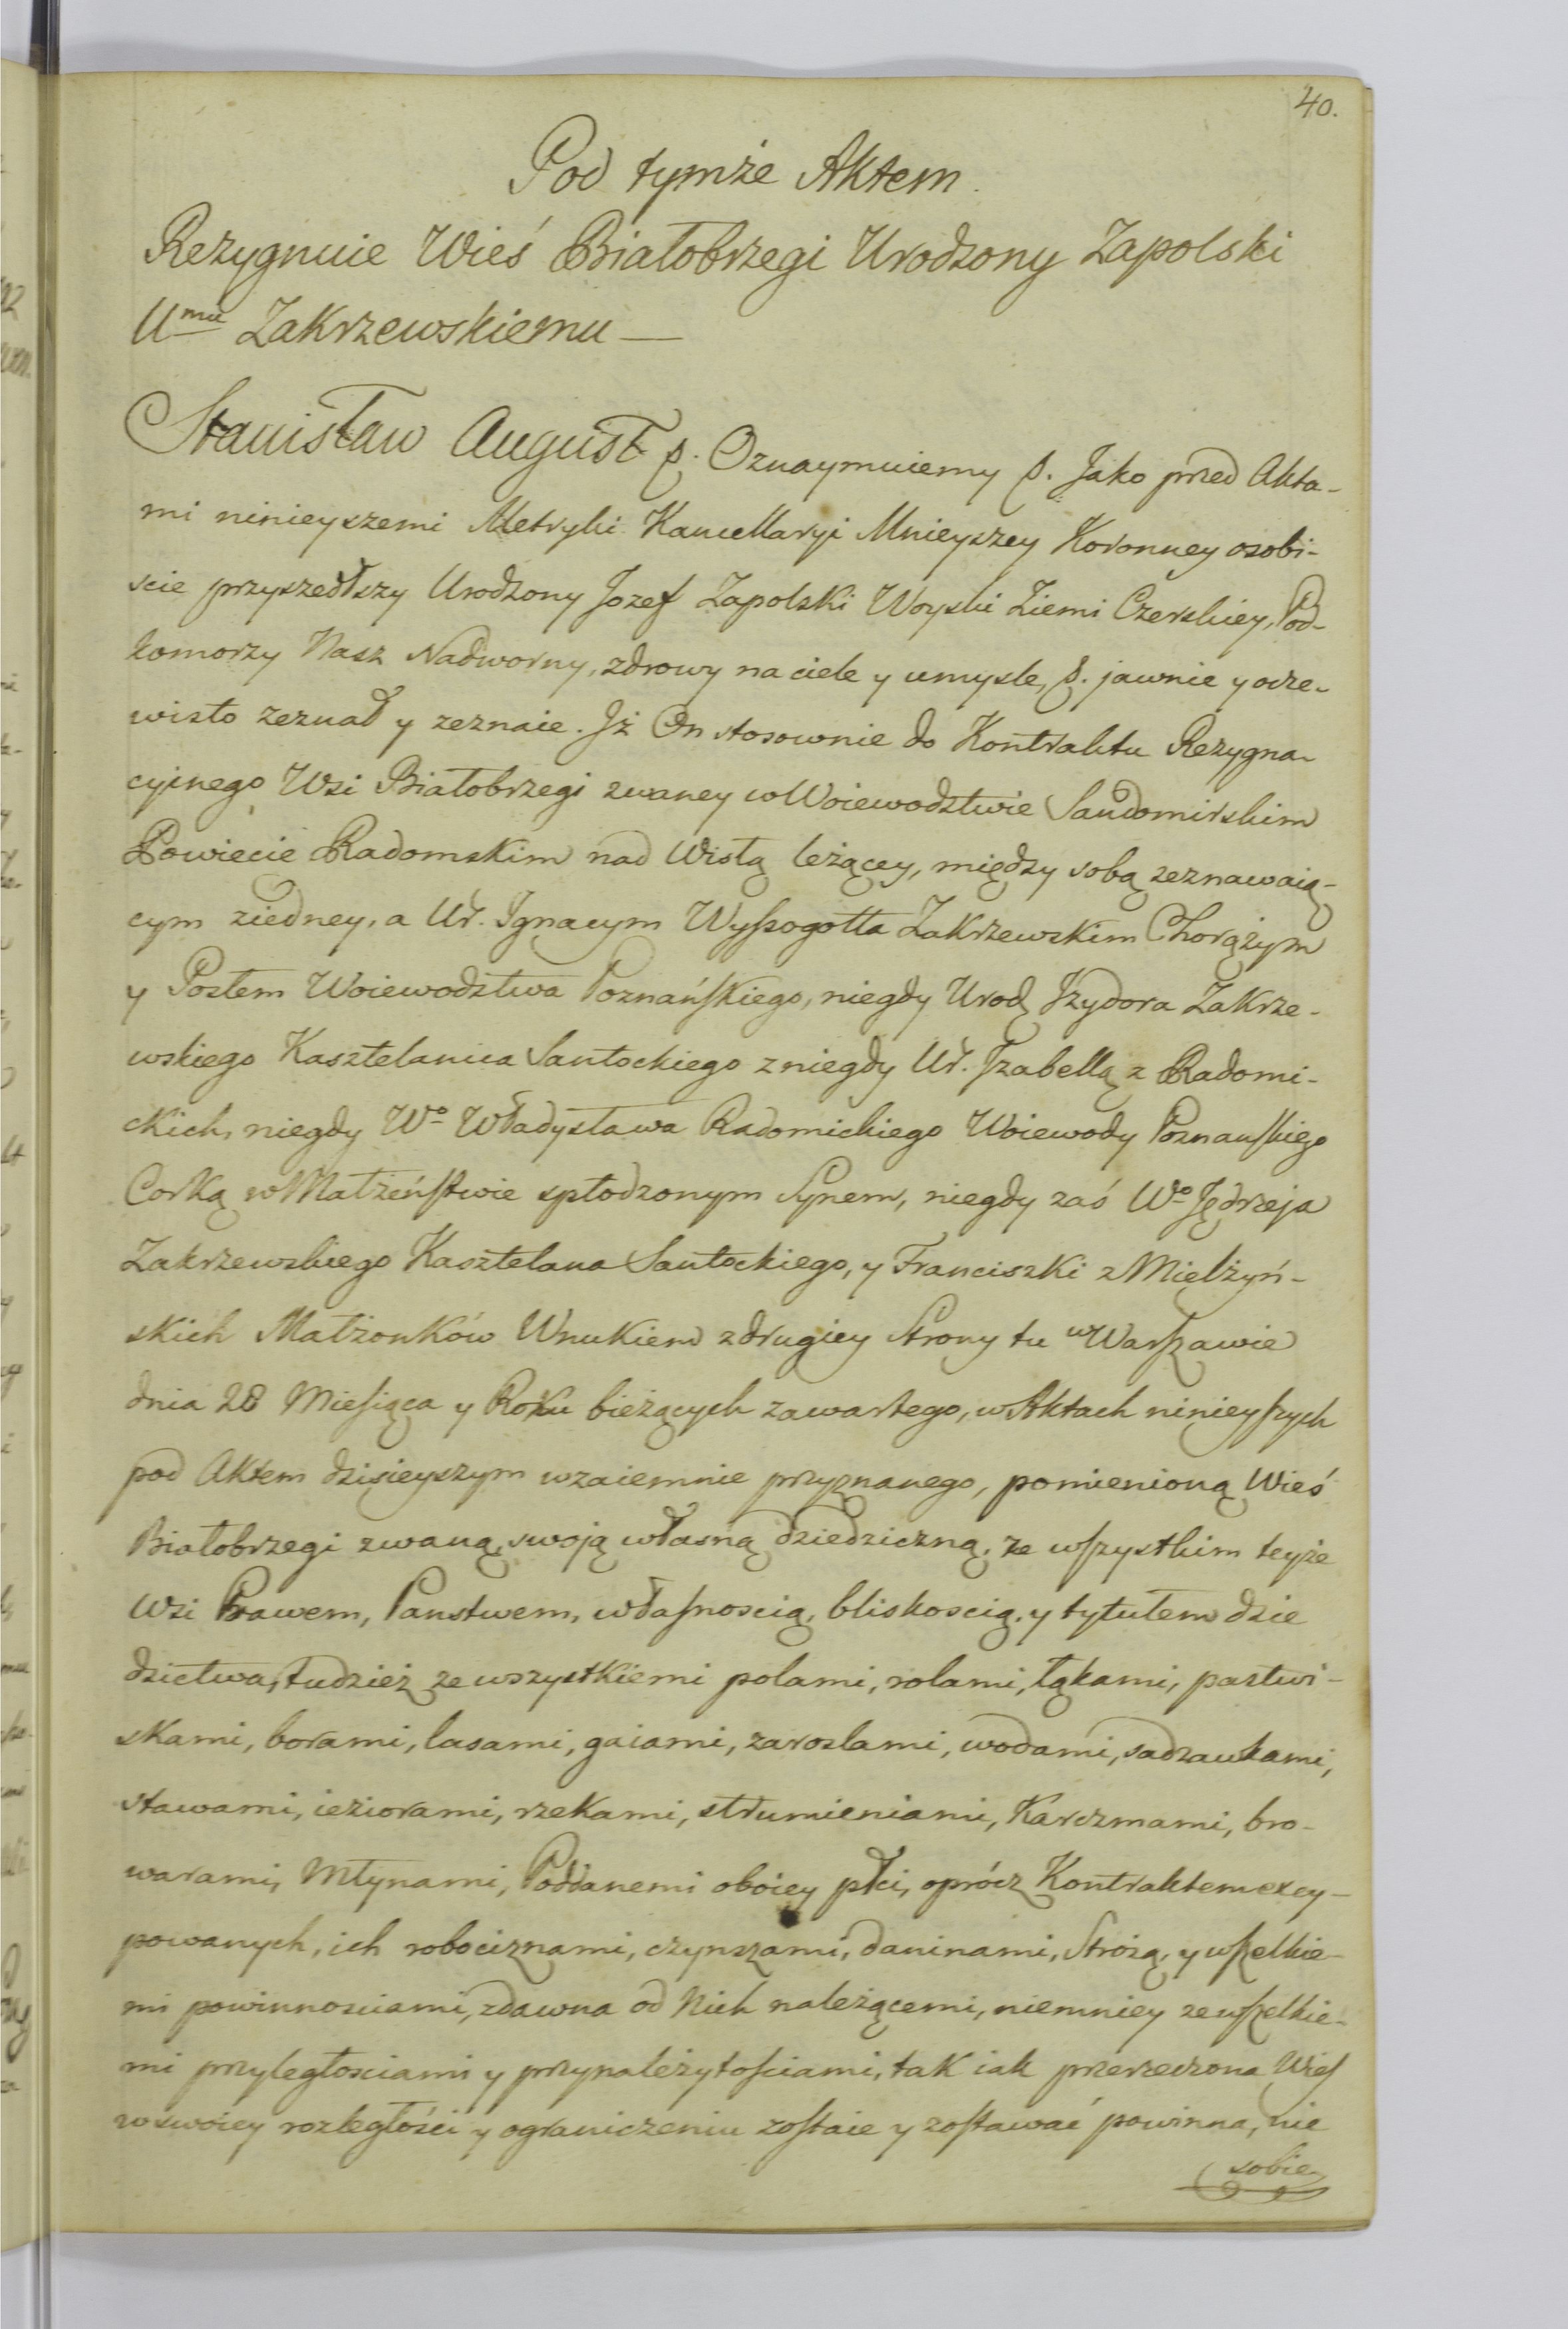 40.
Pod tymże Aktem.
Rezygnuie Wieś Białobrzegi Urodzony Zapolski
Umu Zakrzewskiemu —
Stanisław August p. Oznaymuiemy p. Jako przed Akta-
mi ninieyszemi Metryki Kancellaryi Mnieyszey Koronney osobi-
scie przyszedłszy Urodzony Jozef Zapolski Woyski Ziemi Czerskiey, Pod-
komorzy Nasz Nadworny, zdrowy na ciele y umysle, p. jawnie y ocze-
wisto zeznał y zeznaie. Jż On stosownie do Kontraktu Rezygna-
cyinego Wsi Białobrzegi zwaney w Woiewodztwie Sandomirskim
Powiecie Radomskim nad Wisłą leżącey, między sobą zeznawaią-
cym ziedney, a Ur. Ignacym Wyssogotta Zakrzewskim Chorążym
y Posłem Woiewodztwa Poznańskiego, niegdy Urod Jzydora Zakrze-
wskiego Kasztelanica Santockiego z niegdy Ur. Jzabellą z Radomi-
ckich, niegdy Wo Władysława Radomickiego Woiewody Poznanskiego
Corką w Małżeństwie spłodzonym Synem, niegdy zaś Wo Jędrzeja
Zakrzewskiego Kasztelana Santockiego, y Franciszki z Mielżyń-
skich Małżonków Wnukiem z drugiey Strony tu w Warszawie
dnia 28 Miesiąca y Roku bieżących zawartego, w Aktach ninieyszych
pod Aktem dzisieyszym wzaiemnie przyznanego, pomienioną Wieś
Białobrzegi zwaną, swoją własną dziedziczną, ze wszystkim teyże
Wsi Prawem, Panstwem, własnoscią, bliskoscią, y tytułem dzie
dzictwa, tudzież ze wszystkiemi polami, rolami, łąkami, pastwi-
skami, borami, lasami, gaiami, zaroslami, wodami, sadzawkami,
stawami, ieziorami, rzekami, strumieniami, Karczmami, bro-
warami, Młynami, Poddanemi oboiey płci, oprócz Kontraktem excy-
powanych, ich robociznami, czynszami, daninami, Strożą, y wszelkie-
mi powinnosciami, zdawna od Nich należącemi, niemniey ze wszelkie-
mi przyległosciami y przynależytosciami, tak iak przerzeczona Wies
w swoiey rozległości y ograniczeniu zostaie y zostawać powinna, nie
sobie